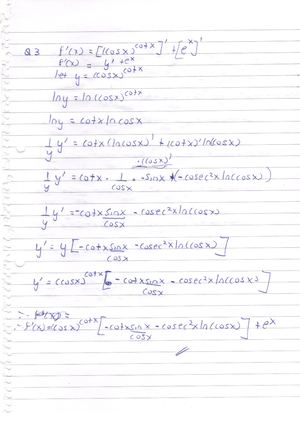 Q3 f'(x) = [(cosx)^cotx]' + [e^x]'
f'(x) = y' + e^x
let y = (cosx)^cotx
lny = ln(cosx)^cotx
lny = cotx lncosx
1/y y' = cotx(lncosx)' + (cotx)'ln(cosx)
·(cosx)'
1/y y' = cotx · 1/cosx · -sinx + (-cosec²x ln(cosx))
1/y y' = -cotx sinx/cosx - cosec²x ln(cosx)
y' = y[-cotx sinx/cosx - cosec²x ln(cosx)]
y' = (cosx)^cotx [-cotx sinx/cosx - cosec²x ln(cosx)]
∴ f'(x) =
∴ f'(x) = (cosx)^cotx [-cotx sinx/cosx - cosec²x ln(cosx)] + e^x